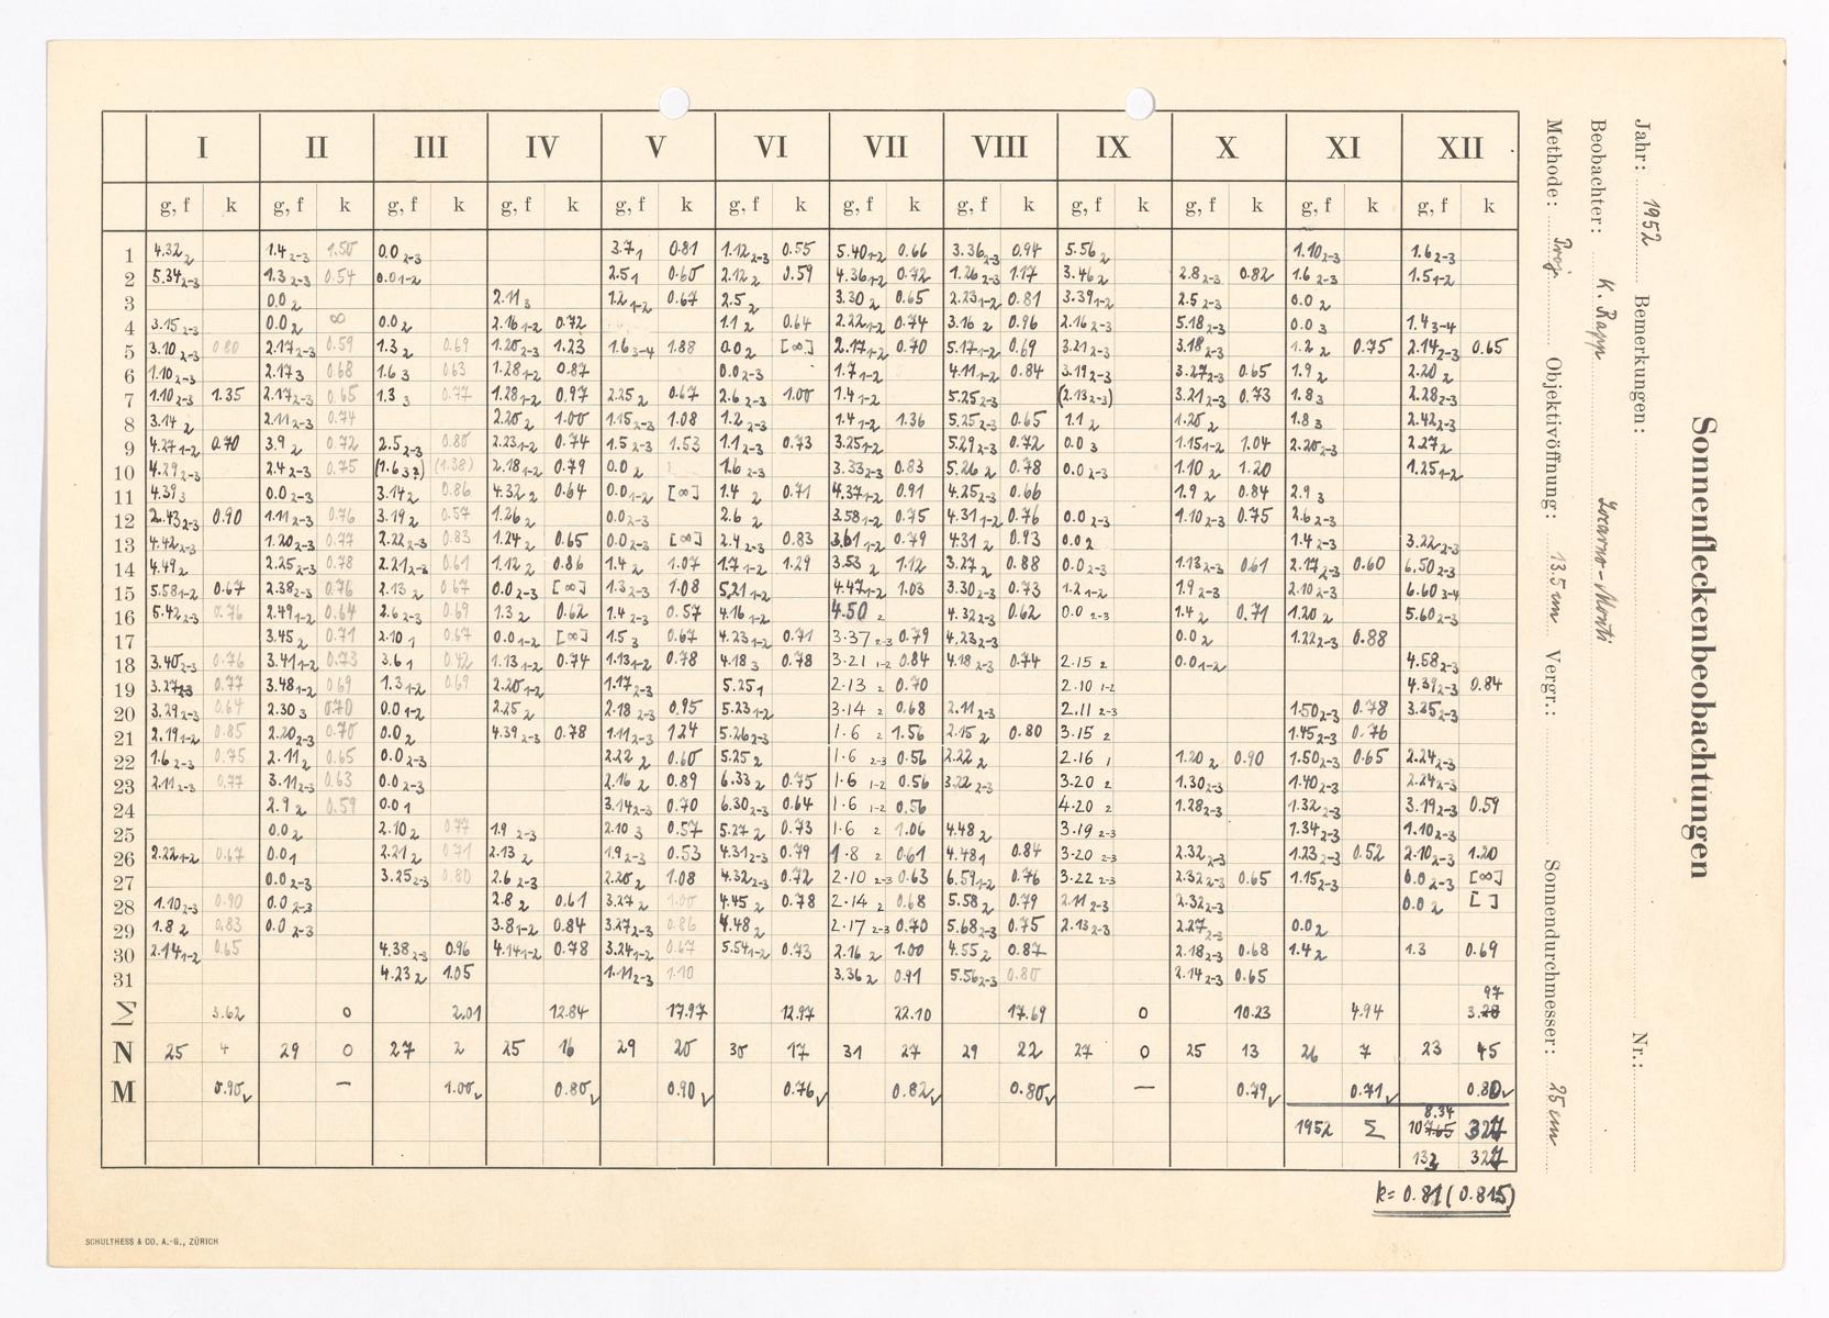 I II III IV V VI VII VIII IX X XI XII
g, f k g, f k g, f k g, f k g, f k g, f k g, f k g, f k g, f k g, f k g, f k g, f k
1 4.32 2 1.4 2-3 1.50 0.0 2-3 3.7 1 0.81 1.12 2-3 0.55 5.40 1-2 0.66 3.36 2-3 0.94 5.56 2 1.10 2-3 1.6 2-3
2 5.34 2-3 1.3 2-3 0.54 0.0 1-2 2.5 1 0.60 2.12 2 0.59 4.36 1-2 0.72 1.26 2-3 1.17 3.46 2 2.8 2-3 0.82 1.6 2-3 1.5 1-2
3 0.0 2 2.11 3 1.2 1-2 0.67 2.5 2 3.30 2 0.65 2.23 1-2 0.81 3.39 1-2 2.5 2-3 0.0 2
4 3.15 2-3 0.0 2 ∞ 0.0 2 2.16 1-2 0.72 1.1 2 0.64 2.22 1-2 0.74 3.16 2 0.96 2.16 2-3 5.18 2-3 0.0 3 1.4 3-4
5 3.10 2-3 0.80 2.17 2-3 0.59 1.3 2 0.69 1.20 2-3 1.23 1.6 3-4 1.88 0.0 2 [∞] 2.17 1-2 0.70 5.17 1-2 0.69 3.21 2-3 3.18 2-3 1.2 2 0.75 2.14 2-3 0.65
6 1.10 2-3 2.17 3 0.68 1.6 3 0.63 1.28 1-2 0.87 0.0 2-3 1.7 1-2 4.11 1-2 0.84 3.19 2-3 3.27 2-3 0.65 1.9 2 2.20 2
7 1.10 2-3 1.35 2.17 2-3 0.65 1.3 3 0.77 1.28 1-2 0.97 2.25 2 0.67 2.6 2-3 1.00 1.4 1-2 5.25 2-3 (2.13 2-3) 3.21 2-3 0.73 1.8 3 2.28 2-3
8 3.14 2 2.11 2-3 0.74 2.20 2 1.00 1.15 2-3 1.08 1.2 2-3 1.4 1-2 1.36 5.25 2-3 0.65 1.1 2 1.20 2 1.8 3 2.42 2-3
9 4.27 1-2 0.70 3.9 2 0.72 2.5 2-3 0.80 2.23 1-2 0.74 1.5 2-3 1.53 1.1 2-3 0.73 3.25 1-2 5.29 2-3 0.72 0.0 3 1.15 1-2 1.04 2.20 2-3 2.27 2
10 4.29 2-3 2.4 2-3 0.75 (1.6 3?) (1.38) 2.18 1-2 0.79 0.0 2 1.6 2-3 3.33 2-3 0.83 5.26 2 0.78 0.0 2-3 1.10 2 1.20 1.25 1-2
11 4.39 3 0.0 2-3 3.14 2 0.86 4.32 2 0.64 0.0 1-2 [∞] 1.4 2 0.71 4.37 1-2 0.91 4.25 2-3 0.66 1.9 2 0.84 2.9 3
12 2.43 2-3 0.90 1.11 2-3 0.76 3.19 2 0.57 1.26 2 0.0 2-3 2.6 2 3.58 1-2 0.75 4.31 1-2 0.76 0.0 2-3 1.10 2-3 0.75 2.6 2-3
13 4.42 2-3 1.20 2-3 0.77 2.22 2-3 0.83 1.24 2 0.65 0.0 2-3 [∞] 2.4 2-3 0.83 3.61 1-2 0.79 4.31 2 0.93 0.0 2 1.4 2-3 3.22 2-3
14 4.49 2 2.25 2-3 0.78 2.21 2-3 0.61 1.12 2 0.86 1.4 2 1.07 1.7 1-2 1.29 3.53 2 1.12 3.27 2 0.88 0.0 2-3 1.13 2-3 0.61 2.17 2-3 0.60 6.50 2-3
15 5.58 1-2 0.67 2.38 2-3 0.76 2.13 2 0.67 0.0 2-3 [∞] 1.3 2-3 1.08 5.21 1-2 4.47 1-2 1.03 3.30 2-3 0.73 1.2 1-2 1.9 2-3 2.10 2-3 6.60 3-4
16 5.42 2-3 0.76 2.49 1-2 0.64 2.6 2-3 0.69 1.3 2 0.62 1.4 2-3 0.57 4.16 1-2 4.50 2 4.32 2-3 0.62 0.0 2-3 1.4 2 0.71 1.20 2 5.60 2-3
17 3.45 2 0.71 2.10 1 0.67 0.0 1-2 [∞] 1.5 3 0.67 4.23 1-2 0.71 3.37 2-3 0.79 4.23 2-3 0.0 2 1.22 2-3 0.88
18 3.40 2-3 0.76 3.41 1-2 0.73 3.6 1 0.42 1.13 1-2 0.74 1.13 1-2 0.78 4.18 3 0.78 3.21 1-2 0.84 4.18 2-3 0.74 2.15 2 0.0 1-2 4.58 2-3
19 3.27 2-3 0.77 3.48 1-2 0.69 1.3 1-2 0.69 2.20 1-2 1.17 2-3 5.25 1 2.13 2 0.70 2.10 1-2 4.39 2-3 0.84
20 3.29 2-3 0.64 2.30 3 0.70 0.0 1-2 2.25 2 2.18 2-3 0.95 5.23 1-2 3.14 2 0.68 2.11 2-3 2.11 2-3 1.50 2-3 0.78 3.25 2-3
21 2.19 1-2 0.85 2.20 2-3 0.70 0.0 2 4.39 2-3 0.78 1.11 2-3 1.24 5.26 2-3 1.6 2 1.56 2.15 2 0.80 3.15 2 1.45 2-3 0.76
22 1.6 2-3 0.75 2.11 2 0.65 0.0 2-3 2.22 2 0.60 5.25 2 1.6 2-3 0.56 2.22 2 2.16 1 1.20 2 0.90 1.50 2-3 0.65 2.24 2-3
23 2.11 2-3 0.77 3.11 2-3 0.63 0.0 2-3 2.16 2 0.89 6.33 2 0.75 1.6 1-2 0.56 3.22 2-3 3.20 2 1.30 2-3 1.40 2-3 2.24 2-3
24 2.9 2 0.59 0.0 1 3.14 2-3 0.70 6.30 2-3 0.64 1.6 1-2 0.56 4.20 2 1.28 2-3 1.32 2-3 3.19 2-3 0.59
25 0.0 2 2.10 2 0.77 1.9 2-3 2.10 3 0.57 5.27 2 0.73 1.6 2 1.06 4.48 2 3.19 2-3 1.34 2-3 1.10 2-3
26 2.22 1-2 0.67 0.0 1 2.21 2 0.71 2.13 2 1.9 2-3 0.53 4.31 2-3 0.79 1.8 2 0.61 4.48 1 0.84 3.20 2-3 2.32 2-3 1.23 2-3 0.52 2.10 2-3 1.20
27 0.0 2-3 3.25 2-3 0.80 2.6 2-3 2.20 2 1.08 4.32 2-3 0.72 2.10 2-3 0.63 6.59 1-2 0.76 3.22 2-3 2.32 2-3 0.65 1.15 2-3 0.0 2-3 [∞]
28 1.10 2-3 0.90 0.0 2-3 2.8 2 0.61 3.27 2 1.00 4.45 2 0.78 2.14 2 0.68 5.58 2 0.79 2.11 2-3 2.32 2-3 0.0 2 [ ]
29 1.8 2 0.83 0.0 2-3 3.8 1-2 0.84 3.27 2-3 0.86 4.48 2 2.17 2-3 0.70 5.68 2-3 0.75 2.13 2-3 2.27 2-3 0.0 2
30 2.14 1-2 0.65 4.38 2-3 0.96 4.14 1-2 0.78 3.24 1-2 0.67 5.54 1-2 0.73 2.16 2 1.00 4.55 2 0.87 2.18 2-3 0.68 1.4 2 1.3 0.69
31 4.23 2 1.05 1.11 2-3 1.10 3.36 2 0.91 5.56 2-3 0.80 2.14 2-3 0.65
97
Σ 3.62 0 2.01 12.84 17.97 12.97 22.10 17.69 0 10.23 4.94 3.28
N 25 4 29 0 27 2 25 16 29 20 30 17 31 27 29 22 27 0 25 13 26 7 23 45
M 0.90 – 1.00 0.80 0.90 0.76 0.82 0.80 — 0.79 0.71 0.80
8.34
1952 Σ 107.65 327
132 327
k = 0.81 (0.815)
SCHULTHESS & CO. A.-G., ZÜRICH
Sonnenfleckenbeobachtungen
Jahr: 1952 Bemerkungen: Nr.:
Beobachter: K. Rapp Locarno-Monti
Methode: Proj. Objektivöffnung: 13.5 cm Vergr.: Sonnendurchmesser: 25 cm